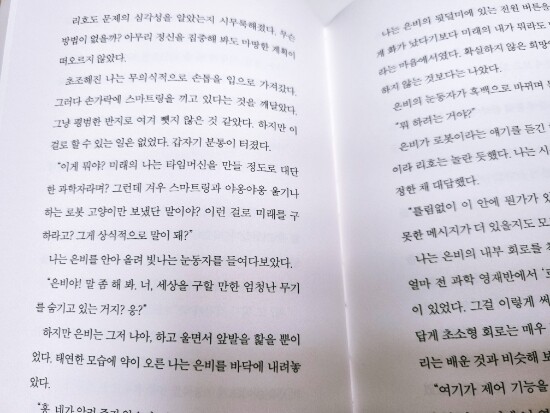 리호도 문제의 심각성을 알았는지 시무룩해졌다. 무슨
방법이 없을까? 아무리 정신을 집중해 봐도 마땅한 계획이
떠오르지 않았다.
초조해진 나는 무의식적으로 손톱을 입으로 가져갔다.
그러다 손가락에 스마트링을 끼고 있다는 것을 깨달았다.
그냥 평범한 반지로 여겨 뺏지 않은 것 같았다. 하지만 이
걸로 할 수 있는 일은 없었다. 갑자기 분통이 터졌다.
“이게 뭐야? 미래의 나는 타임머신을 만들 정도로 대단
한 과학자라며? 그런데 겨우 스마트링과 야옹야옹 울기나
하는 로봇 고양이만 보냈단 말이야? 이런 걸로 미래를 구
하라고? 그게 상식적으로 말이 돼?”
나는 은비를 안아 올려 빛나는 눈동자를 들여다보았다.
“은비야! 말 좀 해 봐. 너, 세상을 구할 만한 엄청난 무기
를 숨기고 있는 거지? 응?”
하지만 은비는 그저 냐아, 하고 울면서 앞발을 핥을 뿐이
었다. 태연한 모습에 약이 오른 나는 은비를 바닥에 내려놓
았다.
“흥, 네가
나는 은비의 뒷덜미에 있는 전원 버튼을
게 화가 났다기보다 미래의 내가 뭐라도
라는 마음에서였다. 확실하지 않은 희망
하지 않는 것보다는 나았다.
은비의 눈동자가 흑백으로 바뀌며
“뭐 하려는 거야?”
은비가 로봇이라는 얘기를 듣긴
이라 리호는 놀란 듯했다. 나는 시
정한 채 대답했다.
“틀림없이 이 안에 뭔가가 있
못한 메시지가 더 있을지도 모
나는 은비의 내부 회로를 찾
얼마 전 과학 영재반에서 ‘로
이 있었다. 그걸 이렇게 써
답게 초소형 회로는 매우
리는 배운 것과 비슷해 보
“여기가 제어 기능을